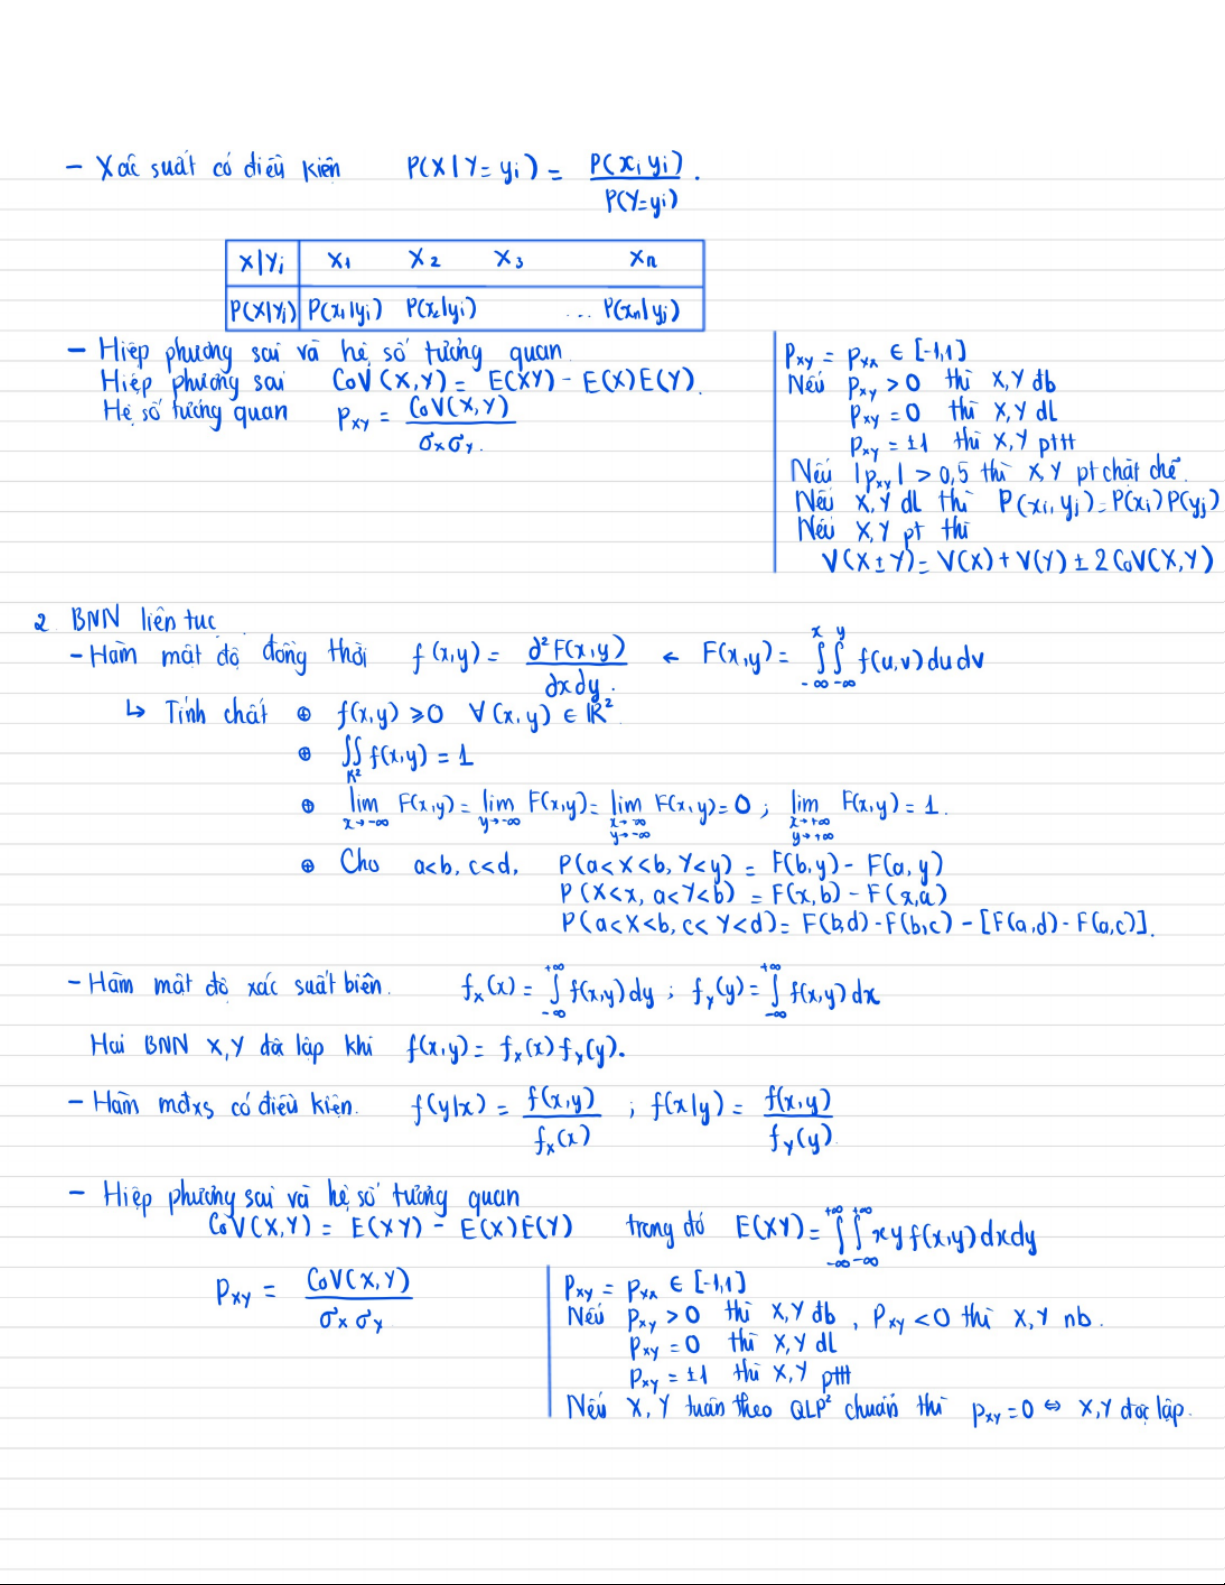 - Xác suất có điều kiện P(X|Y=yi) = P(xi yi) / P(Y=yi) .
X|Yi X1 X2 X3 Xn
P(X|Yi) P(x1|yi) P(x2|yi) ... P(xn|yj)
- Hiệp phương sai và hệ số tương quan
Hiệp phương sai CoV(X,Y) = E(XY) - E(X)E(Y).
Hệ số tương quan Pxy = CoV(X,Y) / σxσy.
Pxy = Pyx ∈ [-1,1]
Nếu Pxy > 0 thì X,Y đb
Pxy = 0 thì X,Y đl
Pxy = ±1 thì X,Y pttt
Nếu |Pxy| > 0,5 thì X,Y pt chặt chẽ.
Nếu X,Y đl thì P(xi, yj) = P(xi)P(yj)
Nếu X,Y pt thì
V(X±Y) = V(X) + V(Y) ± 2CoV(X,Y)
2 BNN liên tục
- Hàm mật độ đồng thời f(x,y) = ∂²F(x,y) / ∂x∂y . ← F(x,y) = ∫_{-∞}^{x} ∫_{-∞}^{y} f(u,v)dudv
↳ Tính chất ⊕ f(x,y) ≥ 0 ∀(x,y) ∈ R²
⊕ ∬_{R²} f(x,y) = 1
⊕ lim_{x→-∞} F(x,y) = lim_{y→-∞} F(x,y) = lim_{x→-∞ y→-∞} F(x,y) = 0 ; lim_{x→+∞ y→+∞} F(x,y) = 1.
⊕ Cho a<b, c<d, P(a<X<b, Y<y) = F(b,y) - F(a,y)
P(X<x, a<Y<b) = F(x,b) - F(x,a)
P(a<X<b, c<Y<d) = F(b,d) - F(b,c) - [F(a,d) - F(a,c)].
- Hàm mật độ xác suất biên. fx(x) = ∫_{-∞}^{+∞} f(x,y)dy ; fy(y) = ∫_{-∞}^{+∞} f(x,y)dx
Hai BNN X,Y độc lập khi f(x,y) = fx(x)fy(y).
- Hàm mđxs có điều kiện. f(y|x) = f(x,y) / fx(x) ; f(x|y) = f(x,y) / fy(y)
- Hiệp phương sai và hệ số tương quan
CoV(X,Y) = E(XY) - E(X)E(Y) trong đó E(XY) = ∫_{-∞}^{+∞} ∫_{-∞}^{+∞} xyf(x,y)dxdy
Pxy = CoV(X,Y) / σx σy
Pxy = Pyx ∈ [-1,1]
Nếu Pxy > 0 thì X,Y đb , Pxy < 0 thì X,Y nb.
Pxy = 0 thì X,Y đl
Pxy = ±1 thì X,Y pttt
Nếu X,Y tuân theo QLP² chuẩn thì Pxy = 0 ⇔ X,Y độc lập.